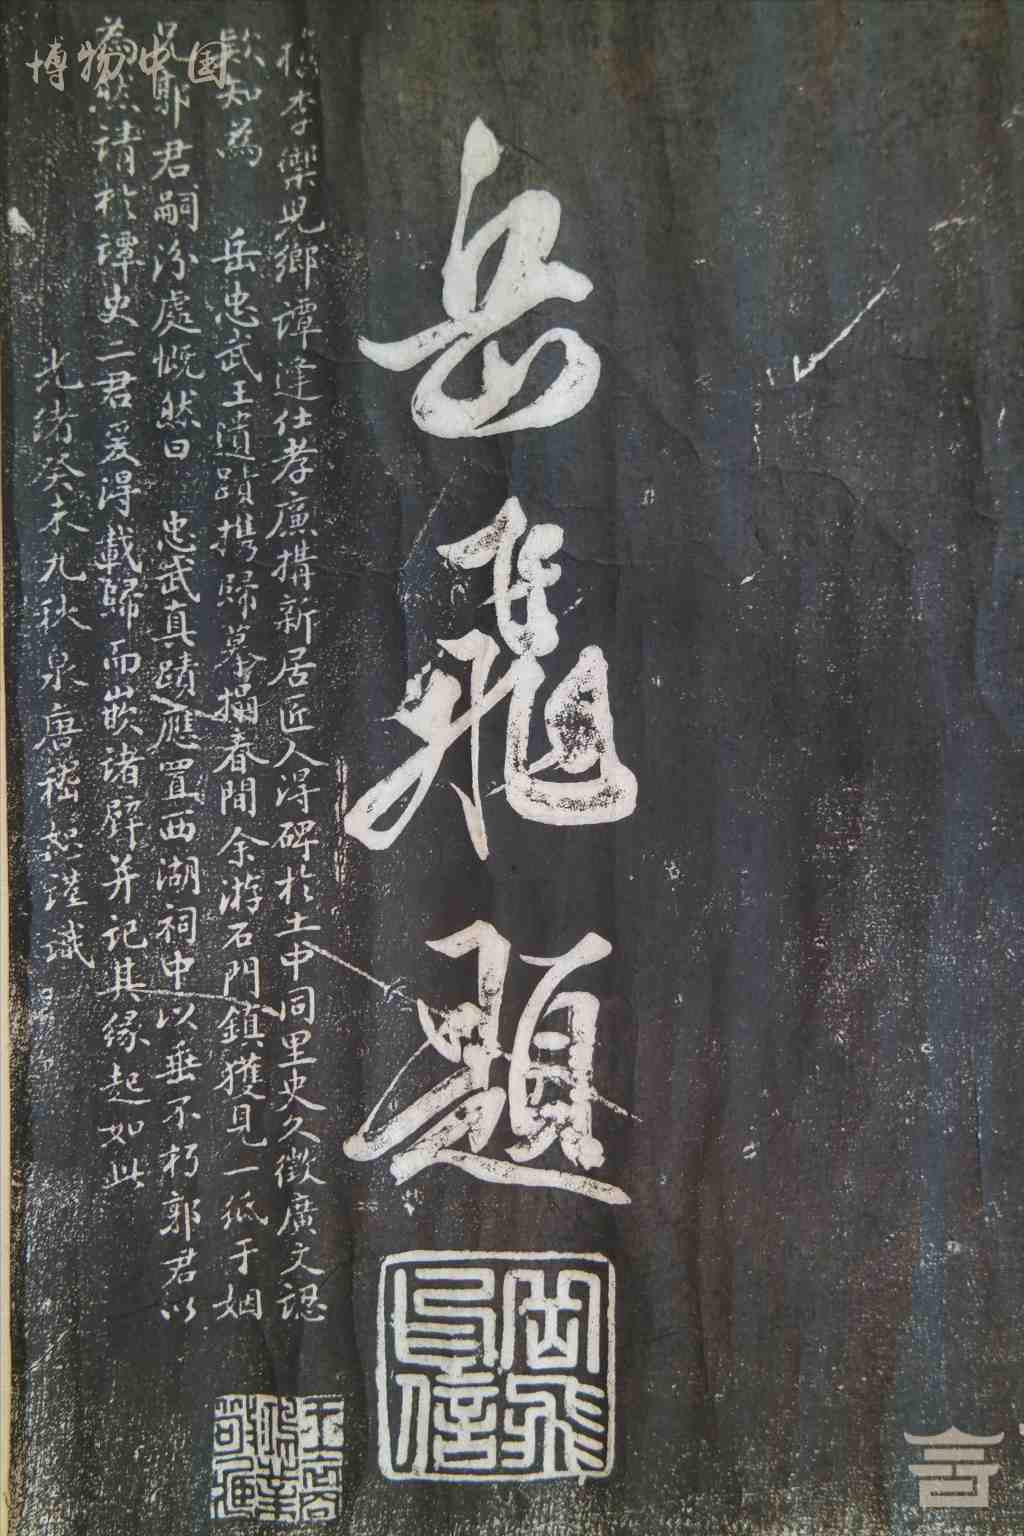 岳飛題
岳飛印信
檇李樂兒鄉譚逢仕孝廉搆新居匠人得碑於土中同里史久徵廣文
知為 岳忠武王遺蹟攜歸摹搨春間余游石門鎮獲見一紙于姻
郭君嗣汾處慨然曰 忠武真蹟應置西湖祠中以垂不朽郭君以
為然請於譚史二君爰得載歸而嵌諸壁并記其緣起如此
光緒癸未九秋泉唐嵇恕謹識
博物中国